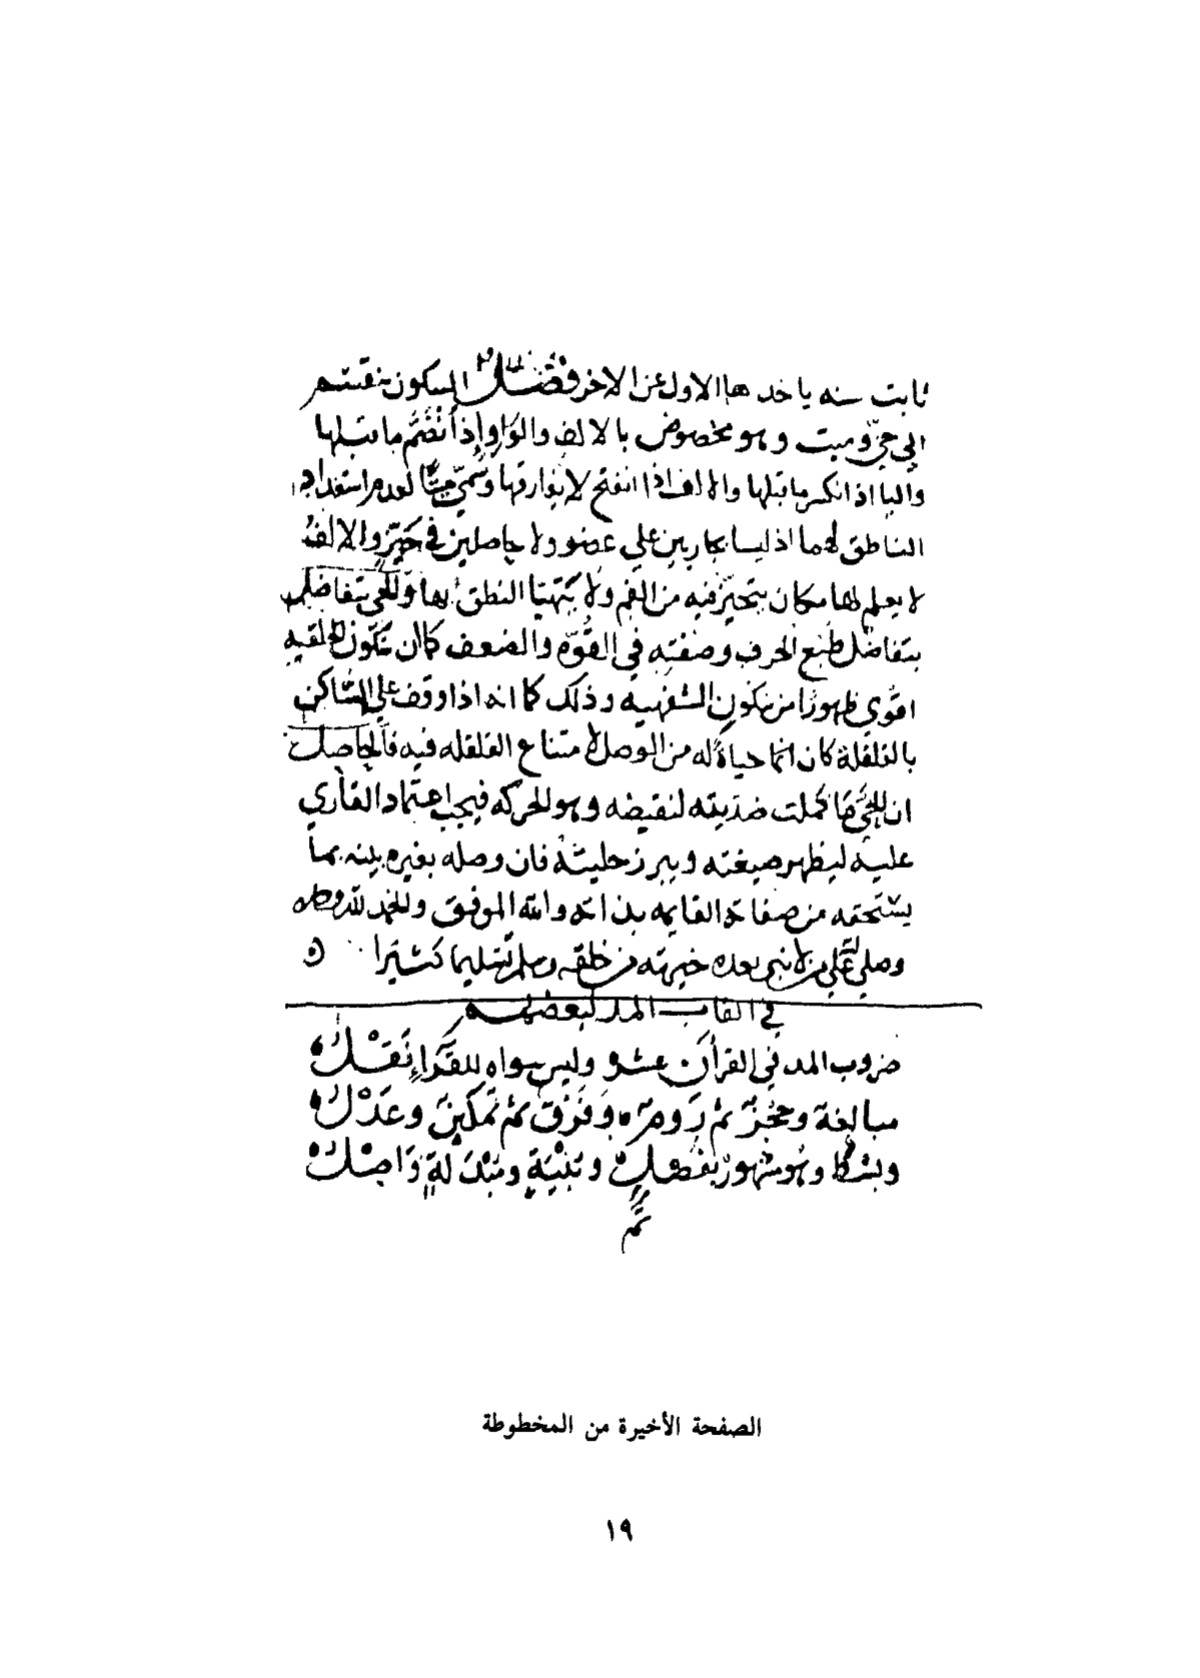 ثابت سنه ياخدها الاول عن الاخر فصل السكون ينقسم
الى حيّ وميت وهو مخصوص بالالف والواو إذا نضمّ ما قبلها
واليا اذا انكسر ما قبلها والالف اذا انفتح لا يفارقها وسمّي ميتًا لعدم استعداد
الناطق لهما اذ ليسا بجاريين علي عضو ولا حاصلين في حيّز والالف
لا يعلم لها مكان يتحيّز فيه من الفم ولا يتهيّا النطق بها والحي يتفاضل
بتفاضل طبع الحرف وصفته في القوّه والضعف كان سكون الحلقيه
اقوي ظهورًا من سكون الشفهيه وذلك كما انه اذا وقف على الساكن
بالقلقلة كان اتما حياة له من الوصل لامتناع القلقله فيه فالحاصل
ان الحيّ ما كملت ضديته لنقيضه وهو الحركه فيجب اعتماد القاري
عليه ليظهر صيغته ويبرز حليته فان وصله بغيره بينه بما
يستحقه من صفاته القايمه بذاته والله الموفق والحمد لله وحده
وصلى الله علي من لا نبي بعده خيرته من خلقه وسلم تسليما كثيرا
في القاب المد لبعضهم
ضروب المد في القرآن عشر وليس سواه للقرّاء نقل
مبالغة وحجز ثم روم وفرق ثم تمكين وعدل
وبسط وهو مشهور بفصل وبنية ومبدلة واصل
تم
الصفحة الأخيرة من المخطوطة
١٩